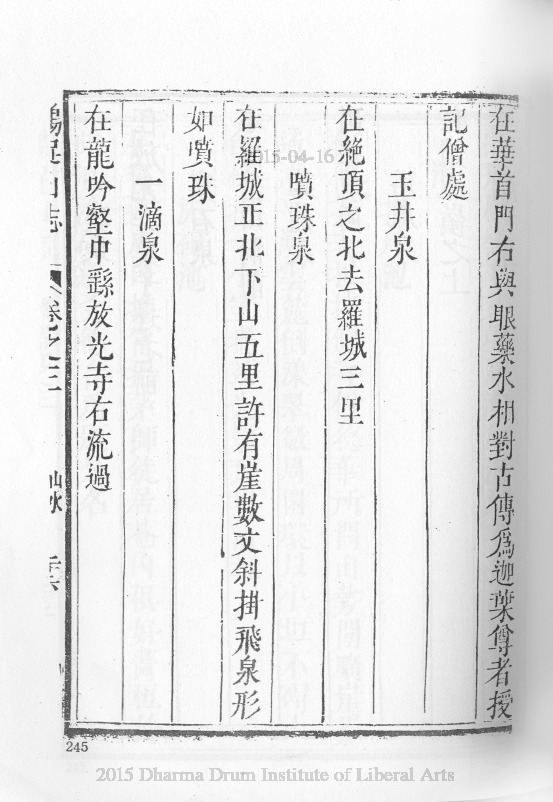 在華首門右與眼藥水相對古傳爲迦葉尊者授
記僧處
玉井泉
在絶頂之北去羅城三里
噴珠泉
在羅城正北下山五里許有崖數丈斜掛飛泉形
如噴珠
一滴泉
在龍吟壑中繇放光寺右流過
山志 卷之三
245
2015-04-16
2015 Dharma Drum Institute of Liberal Arts